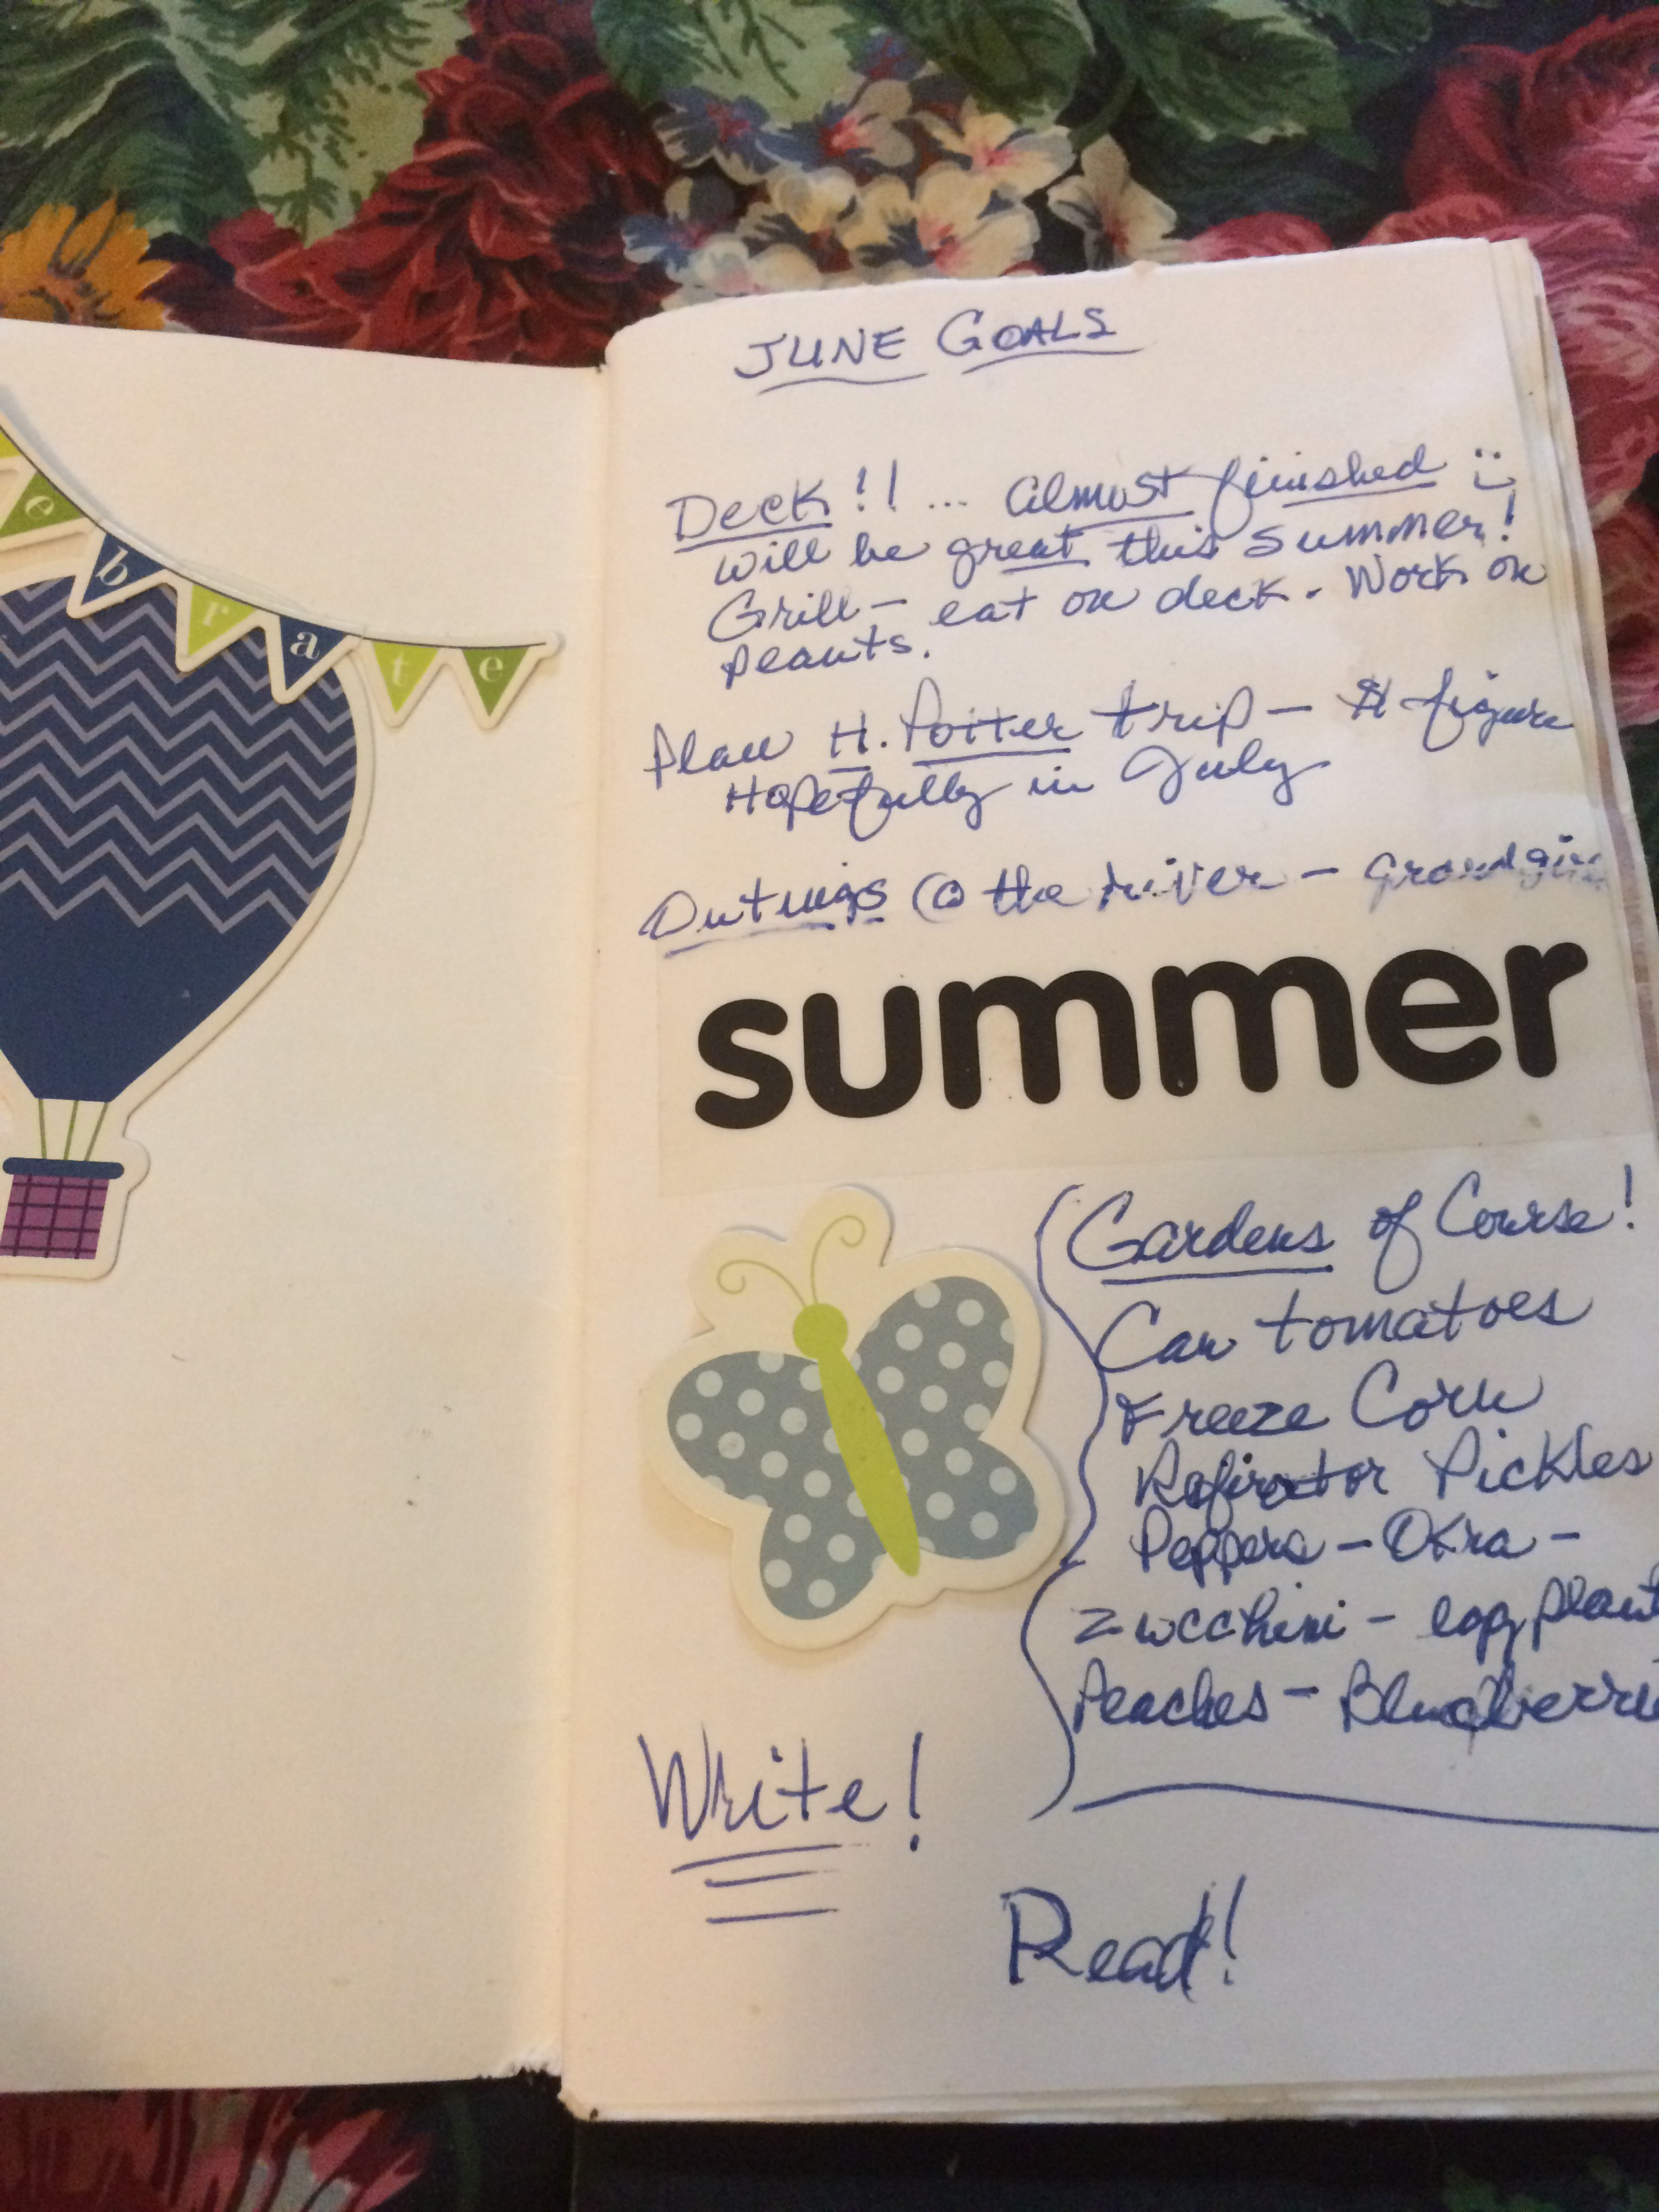 e b r a t e
JUNE GOALS
Deck!! ... almost finished :)
will be great this summer!
Grill - eat on deck. Work on
plants.
Plan H. Potter trip - $ figure
Hopefully in July
Outings @ the river -
summer
Gardens of Course!
Can tomatoes
Freeze Corn
Pickles
Peppers - Okra -
Zucchini - eggplant
Peaches - Blueberrie
Write!
Read!